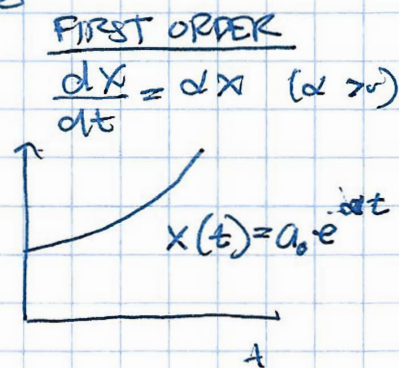 FIRST ORDER
dx/dt = αx (α > 0)
x(t) = a₀·e^αt
t